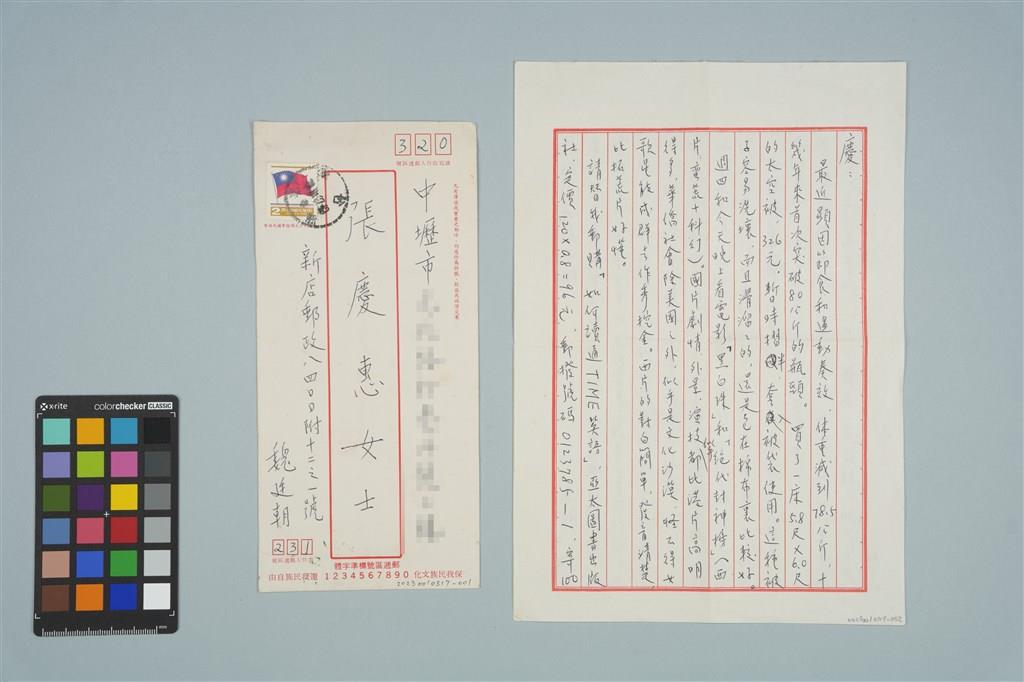 320
中壢市
張慶惠女士
新店郵政八〇四〇〇附十二之一號
魏廷朝
231
郵遞區號標準字體
1234567890
保我民族文化 還我民族自由
20230010317-001
x-rite
colorchecker CLASSIC
mm
慶：
最近顯因節食和運動奏效，体重減到78.5公斤，十
幾年來首次突破80公斤的瓶頸。買了一床5.8尺×6.0尺
的太空被，326元，暫時摺 套入被袋使用。這種被
子容易洗壞，而且滑溜溜的，還是包在棉布裏比較好。
週四和今天晚上看電影「黑白珠」和「絕代封神榜」（西
片，蠻荒＋科幻）。國片劇情、外景、演技都比港片高明
得多，華僑社會除美國之外，似乎是文化沙漠，怪不得女
歌星能成群去作秀挖金。西片的對白簡單，發音清楚，
比拓荒片好懂。
請替我郵購「如何讀通TIME英語」，亞太圖書出版
社，定價120×0.8=96元，郵撥號碼0123785-1，寄100